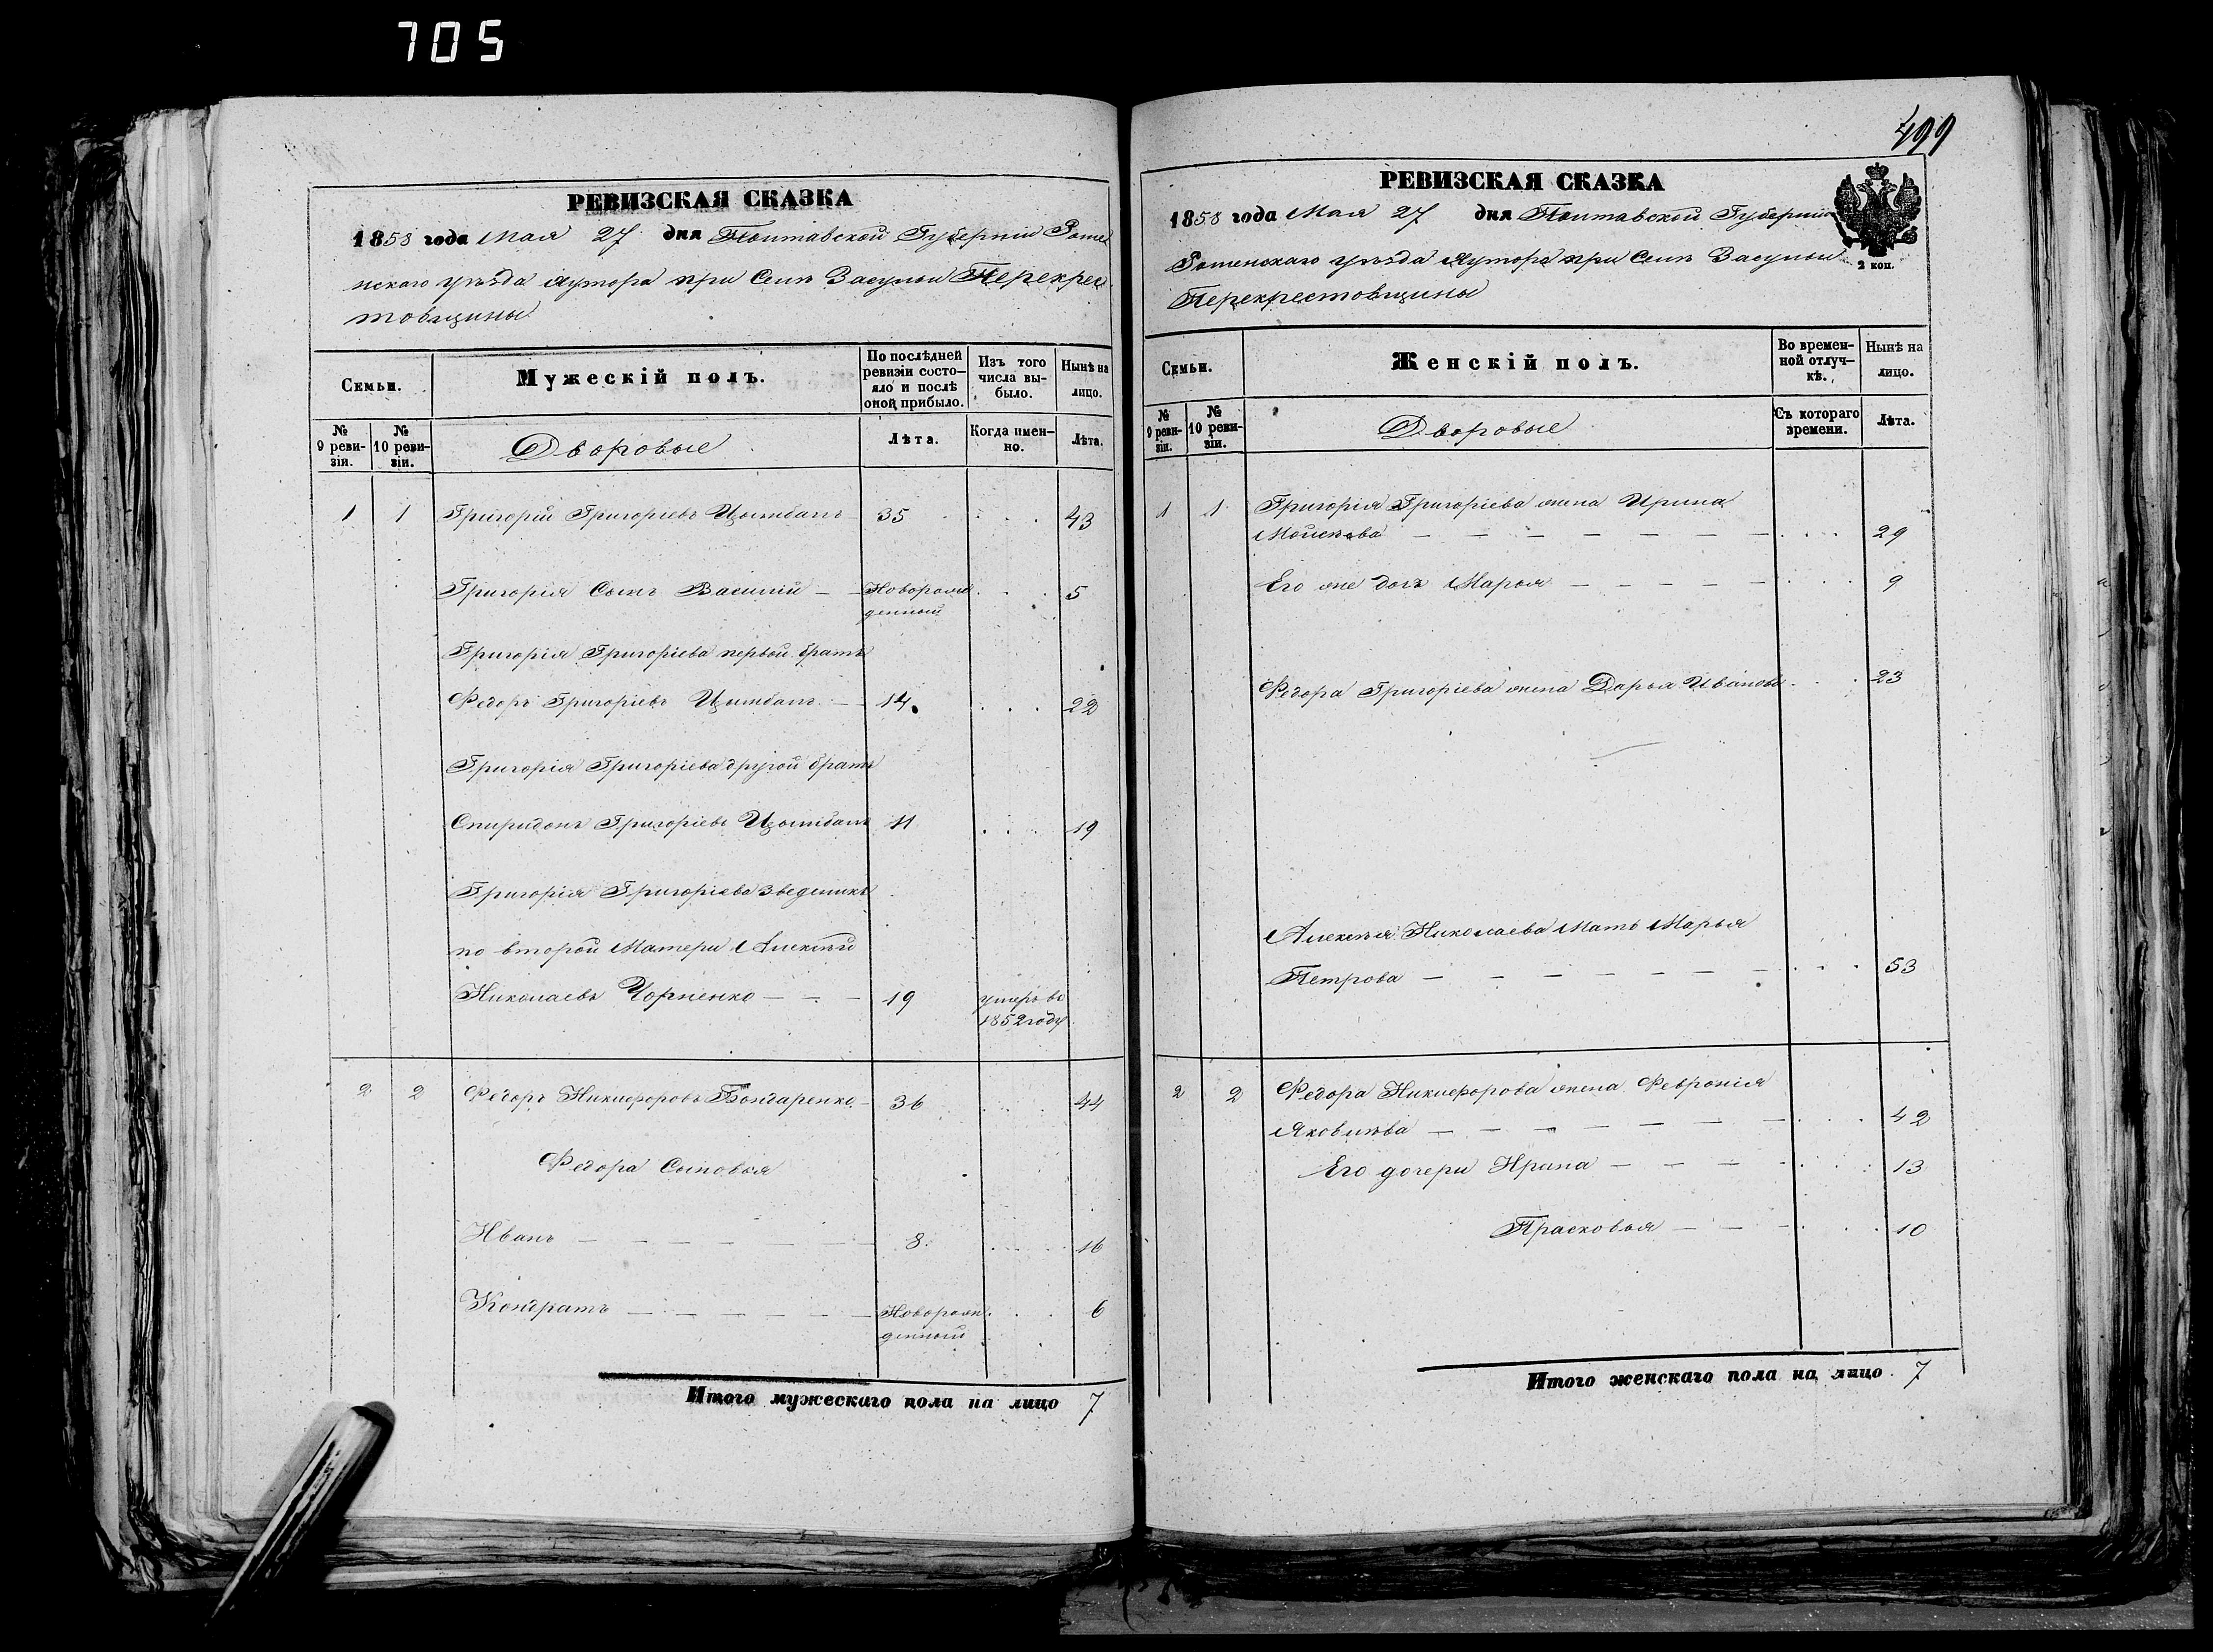 705
РЕВИЗСКАЯ СКАЗКА
1858 года Мая 27 дня Полтавской Губерніи Роме
нскаго уѣзда хутора при Селѣ Засульи Перекрес
товщины
Семьи.
Мужескій полъ.
По послѣдней ревизіи состояло и послѣ оной прибыло.
Изъ того числа выбыло.
Нынѣ на лицо.
№ 9 ревизіи.
№ 10 ревизіи.
Дворовые
Лѣта.
Когда именно.
Лѣта.
1 1 Григорій Григорьевъ Цымбалъ 35 43
Григорія Сынъ Василій Новорож
денный 5
Григорія Григоріева первой братъ
Федоръ Григоріевъ Цымбалъ 14 22
Григорія Григоріева другой братъ
Спиридонъ Григоріевъ Цымбалъ 11 19
Григорія Григоріева зведеникъ
по второй Матери Алексѣй
Николаевъ Чорненко 19 умеръ въ
1852 году
2 2 Федоръ Никифоровъ Бондаренко 36 44
Федора Сыновья
Иванъ 8 16
Кондратъ Новорож
денный 6
Итого мужескаго пола на лицо 7
499
РЕВИЗСКАЯ СКАЗКА
1858 года Мая 27 дня Полтавской Губерніи
Роменскаго уѣзда хутора при Селѣ Засульи
2 коп.
Перекрестовщины
Семьи.
Женскій полъ.
Во временной отлучкѣ.
Нынѣ на лицо.
№ 9 ревизіи.
№ 10 ревизіи.
Дворовые
Съ котораго времени.
Лѣта.
1 1 Григорія Григоріева жена Ирина
Мойсѣева 29
Его же дочь Марья 9
Федора Григоріева жена Дарья Иванова 23
Алексѣя Николаева Мать Марья
Петрова 53
2 2 Федора Никифорова жена Февронія
Яковлѣва 42
Его дочери Ирина 13
Прасковья 10
Итого женскаго пола на лицо 7